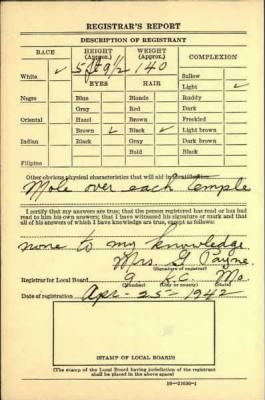 REGISTRAR'S REPORT
DESCRIPTION OF REGISTRANT
RACE HEIGHT (Approx.) WEIGHT (Approx.) COMPLEXION
5 ft 9 1/2 140
White ✓ Sallow
EYES HAIR Light ✓
Negro Blue Blonde Ruddy
Gray Red Dark
Oriental Hazel Brown Freckled
Brown ✓ Black ✓ Light brown
Indian Black Gray Dark brown
Bald Black
Filipino
Other obvious physical characteristics that will aid in identification
Mole over each temple
I certify that my answers are true; that the person registered has read or has had
read to him his own answers; that I have witnessed his signature or mark and that
all of his answers of which I have knowledge are true, except as follows:
none to my knowledge
Mrs. G Payne
(Signature of registrar)
Registrar for Local Board 9 K.C. Mo.
(Number) (City or county) (State)
Date of registration Apr- 25- 1942
(STAMP OF LOCAL BOARD)
(The stamp of the Local Board having jurisdiction of the registrant
shall be placed in the above space)
16—21630-1